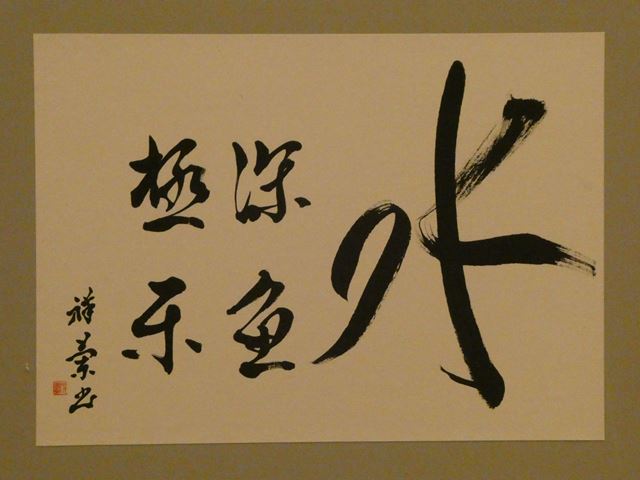 水
深魚
極樂
祥素书